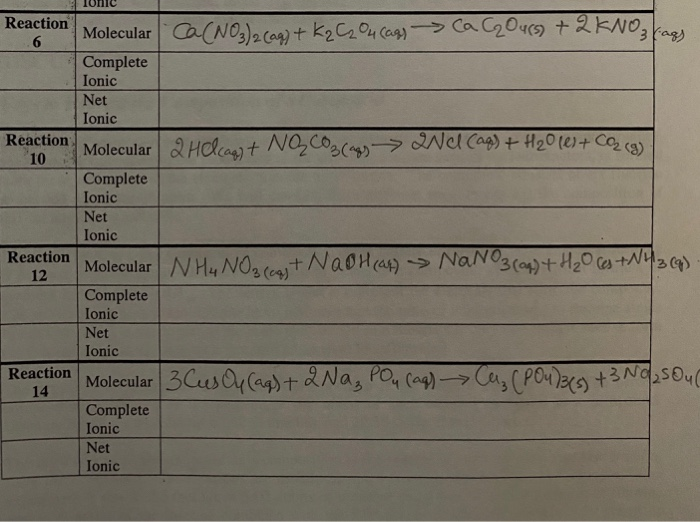 Ionic
Reaction 6 Molecular Ca(NO3)2(aq) + K2C2O4(aq) → CaC2O4(s) + 2KNO3(aq)
Complete Ionic
Net Ionic
Reaction 10 Molecular 2HCl(aq) + NO2CO3(aq) → 2NCl(aq) + H2O(l) + CO2(g)
Complete Ionic
Net Ionic
Reaction 12 Molecular NH4NO3(aq) + NaOH(aq) → NaNO3(aq) + H2O(l) + NH3(g)
Complete Ionic
Net Ionic
Reaction 14 Molecular 3CuSO4(aq) + 2Na3PO4(aq) → Cu3(PO4)3(s) + 3Na2SO4(
Complete Ionic
Net Ionic